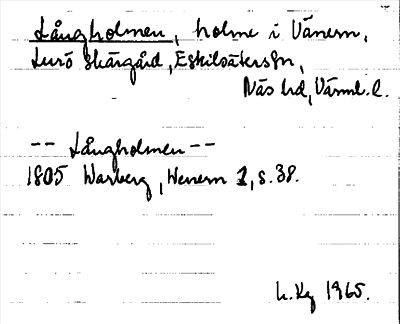 Långholmen, holme i Vänern,
Lurö skärgård, Eskilsäters sn,
Näs hd, Värml. l.
-- Långholmen --
1805 Warberg, Wenern 1, s. 38.
L. Kg 1965.